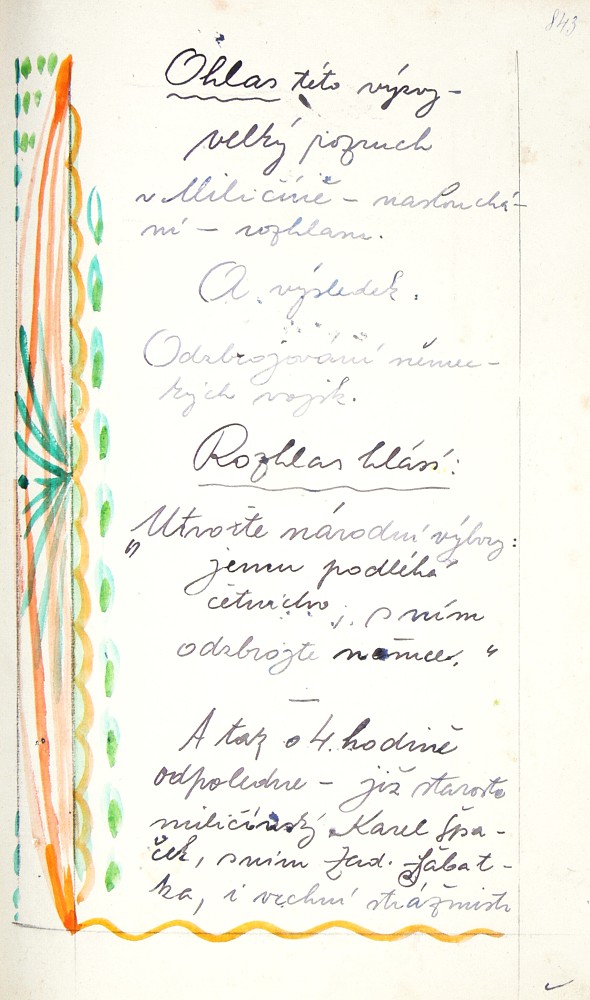 843
Ohlas této výzvy –
velký pozruch
v Miličíně – naslouchá-
ní – rozhlasu.
A výsledek:
Odzbrojování němec-
kých vojsk.
Rozhlas hlásí:
"Utvořte národní výbory:
jemu podléhá
četnictvo, s ním
odzbrojte němce."
—
A tak o 4. hodině
odpoledne – již starosta
miličínský Karel Špa-
ček, s ním Lad. Jábat-
ka, i všichni strážmistr